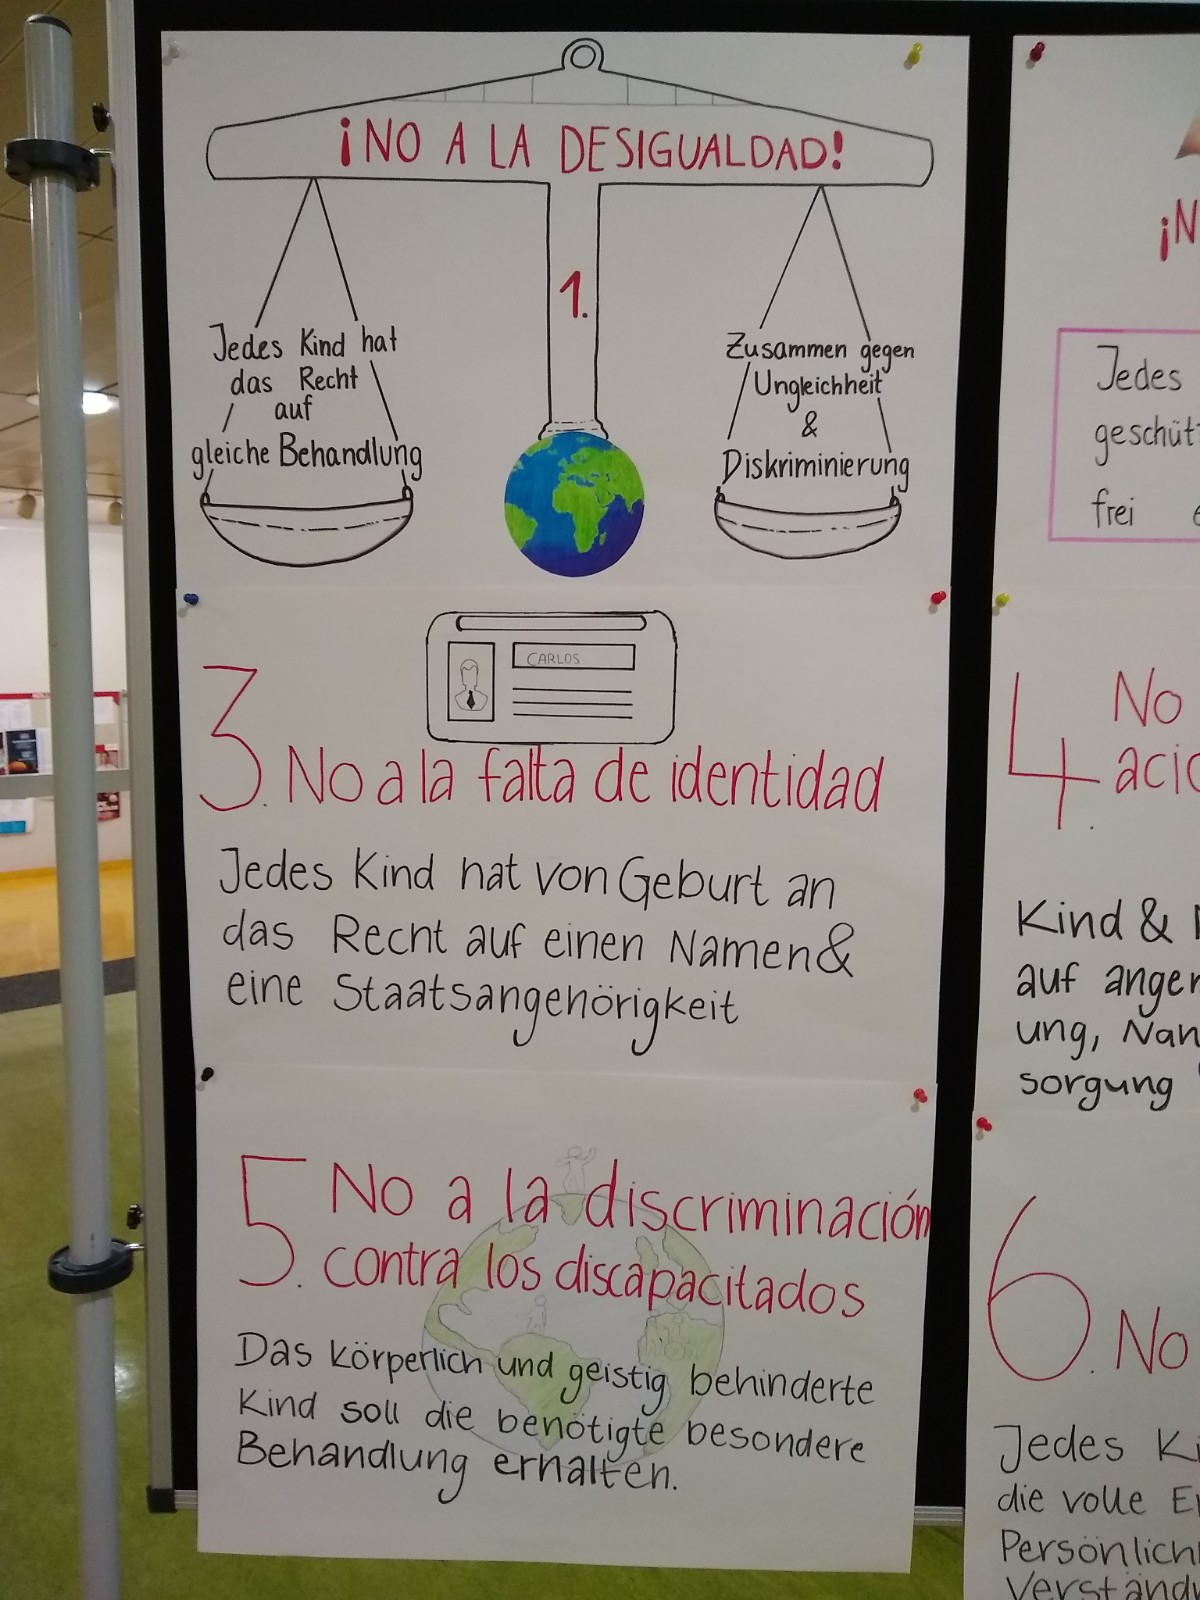 ¡NO A LA DESIGUALDAD!
1.
Jedes Kind hat
das Recht
auf
gleiche Behandlung
Zusammen gegen
Ungleichheit
&
Diskriminierung
CARLOS
3. No a la falta de identidad
Jedes Kind hat von Geburt an
das Recht auf einen Namen &
eine Staatsangehörigkeit
5. No a la discriminación
contra los discapacitados
Das körperlich und geistig behinderte
Kind soll die benötigte besondere
Behandlung erhalten.
Jedes
frei
4. No
Kind &
auf
ung,
sorgung
6. No
Jedes
die volle